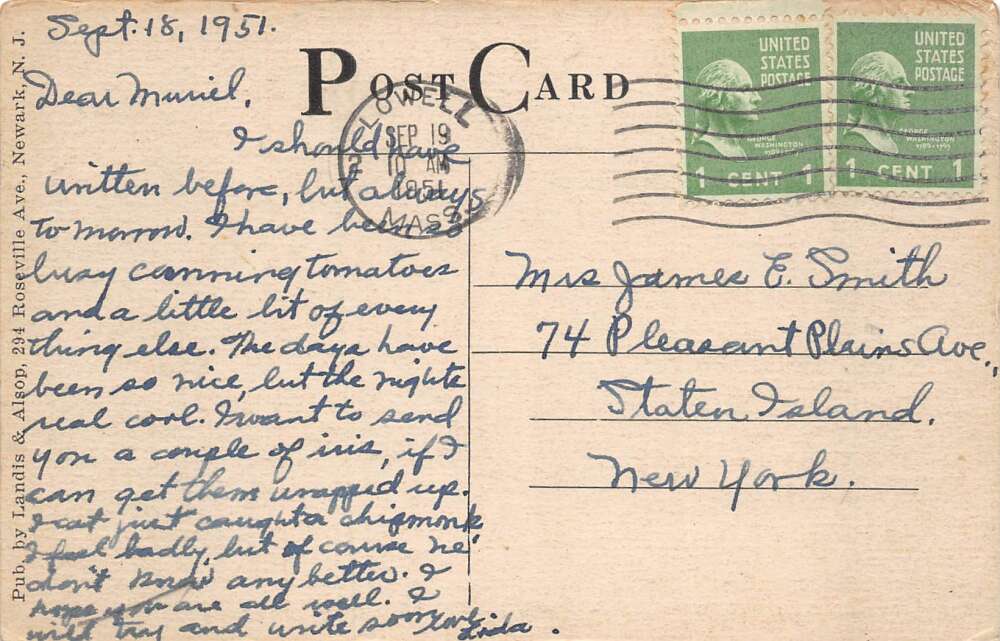 Sept. 18, 1951.
POST CARD
Dear Muriel,
I should have
written before, but always
to morrow. I have been so
busy canning tomatoes
and a little bit of every
thing else. The days have
been so nice, but the nights
real cool. I want to send
you a couple of iris, if I
can get them wrapped up.
cat just caught a chipmonk
I feel badly, but of course he
don't know any better. I
hope you are all well. I
will try and write soon. Love
Linda.
LOWELL
SEP 19
10 AM
1951
MASS
2
UNITED
STATES
POSTAGE
GEORGE
WASHINGTON
1789-1797
1 CENT 1
UNITED
STATES
POSTAGE
GEORGE
WASHINGTON
1789-1797
1 CENT 1
Mrs James E. Smith
74 Pleasant Plains Ave.,
Staten Island.
New York.
Pub. by Landis & Alsop, 294 Roseville Ave., Newark, N. J.